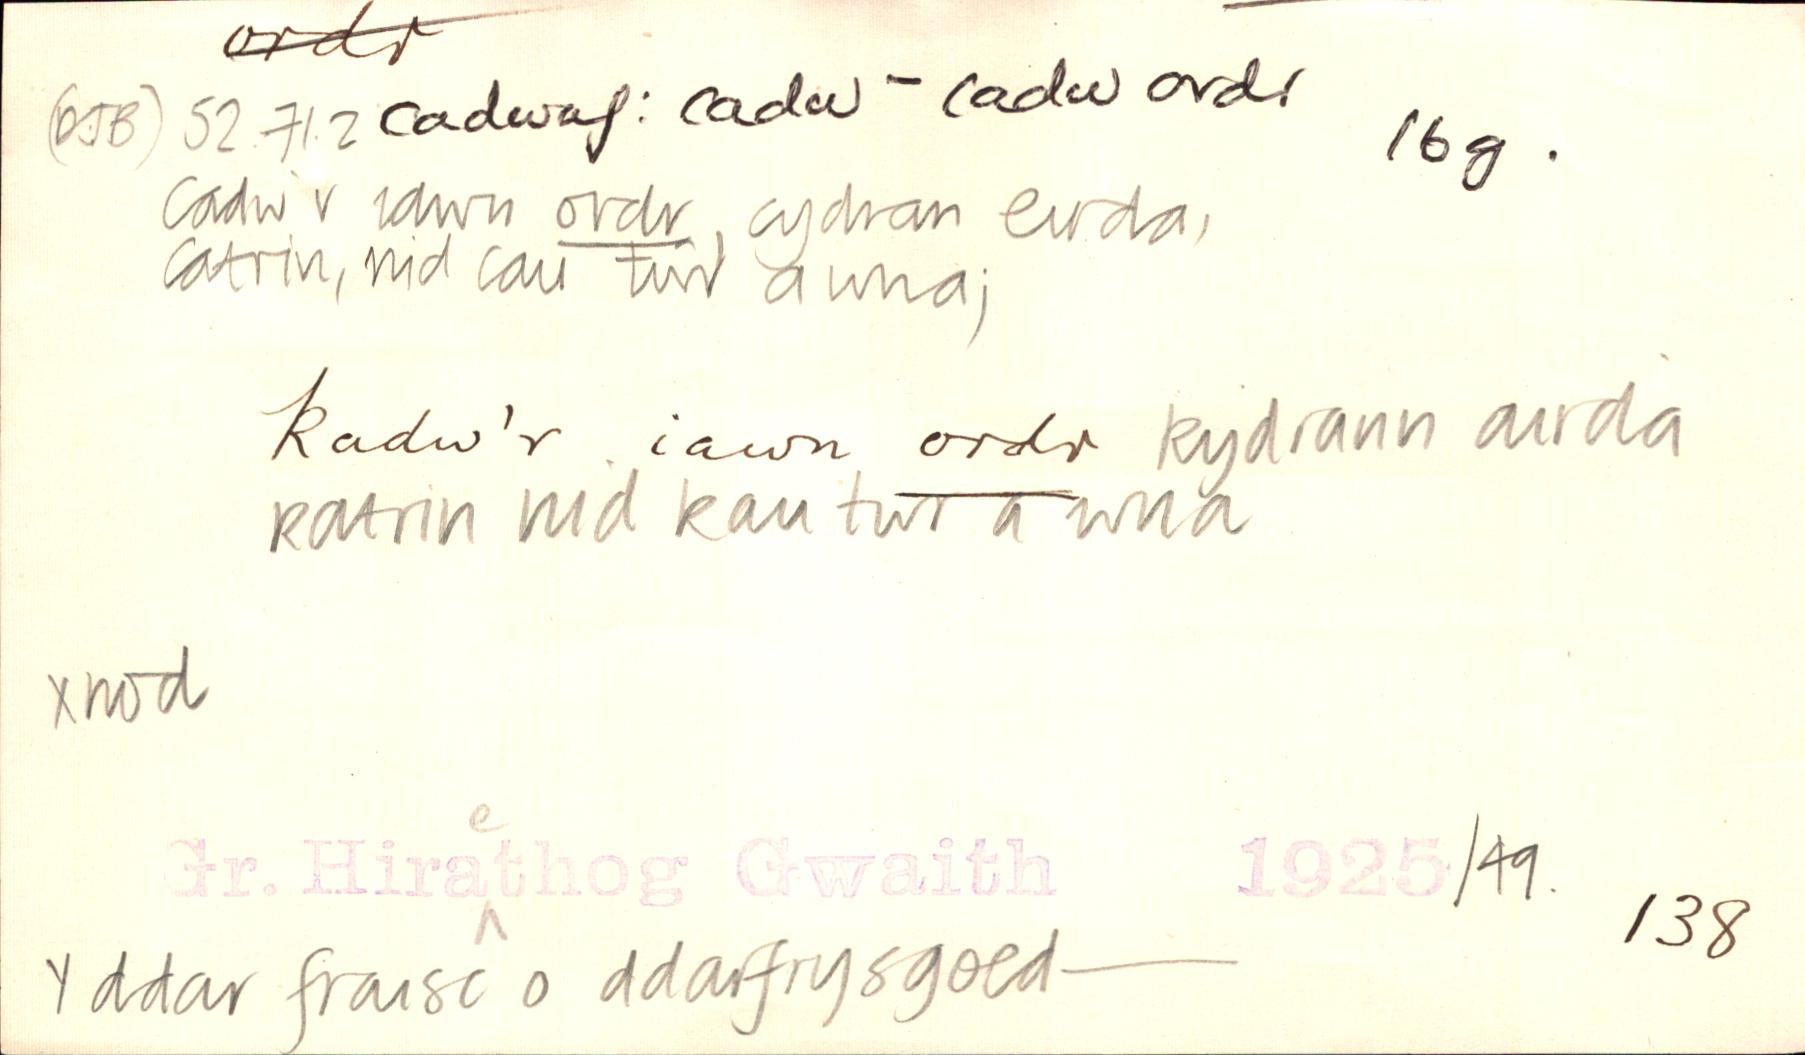 ordr
(DJB) 52.71.2 cadwaf: cadw - cadw ordr 16g.
Cadw'r iawn ordr, cydran eurda,
Catrin, nid cau tŵr a wna;
kadw'r iawn ordr kydrann aurda
katrin nid kau twr a wna
x nod
Gr. Hiraethog Gwaith 1925/49.
138
Y ddar fraisc o ddarfrysgoed—